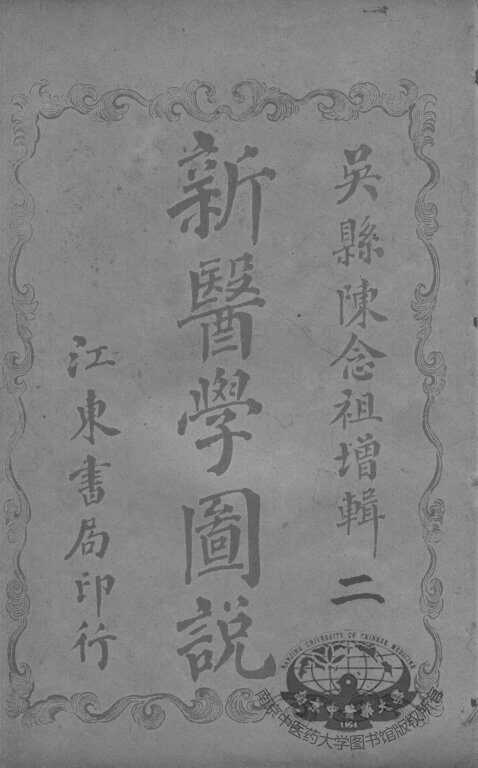 吳縣陳念祖增輯 二
新醫學圖說
江東書局印行
NANJING UNIVERSITY OF CHINESE MEDICINE
南京中醫藥大學
1954
南京中医药大学图书馆版权所有